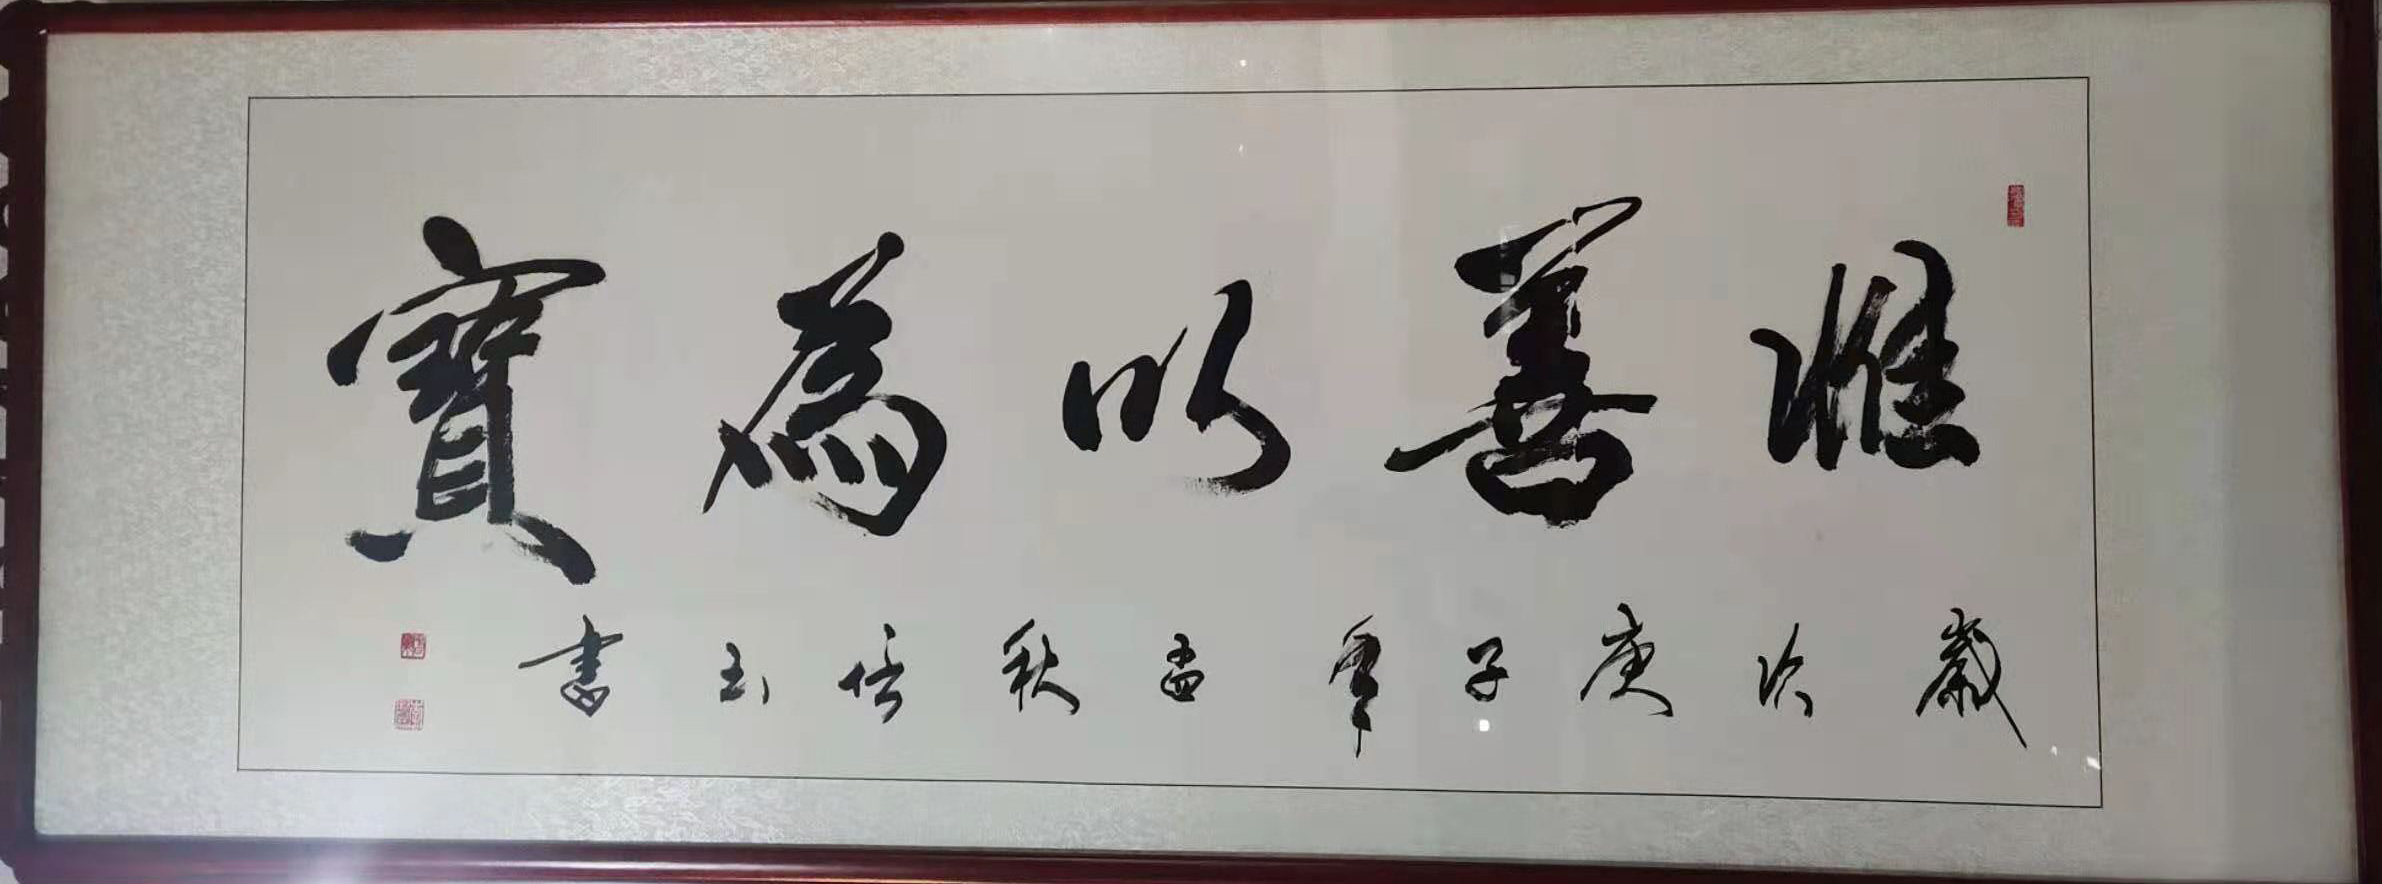 惟善以為寶
歲次庚子年孟秋培玉書